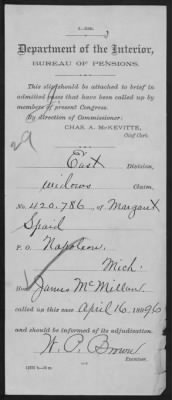 Department of the Interior,
BUREAU OF PENSIONS.
This slip should be attached to brief in
admitted cases that have been called up by
members of present Congress.
By direction of Commissioner:
CHAS. A. McKEVITTE,
Chief Clerk.
29
East Division,
widows Claim,
No. 420.786 of Margaret
Spaid
P. O. Napoleon,
Mich.
Hon. James McMillan
called up this case April 16, 1896
and should be informed of its adjudication.
W. P. Brown
Examiner.